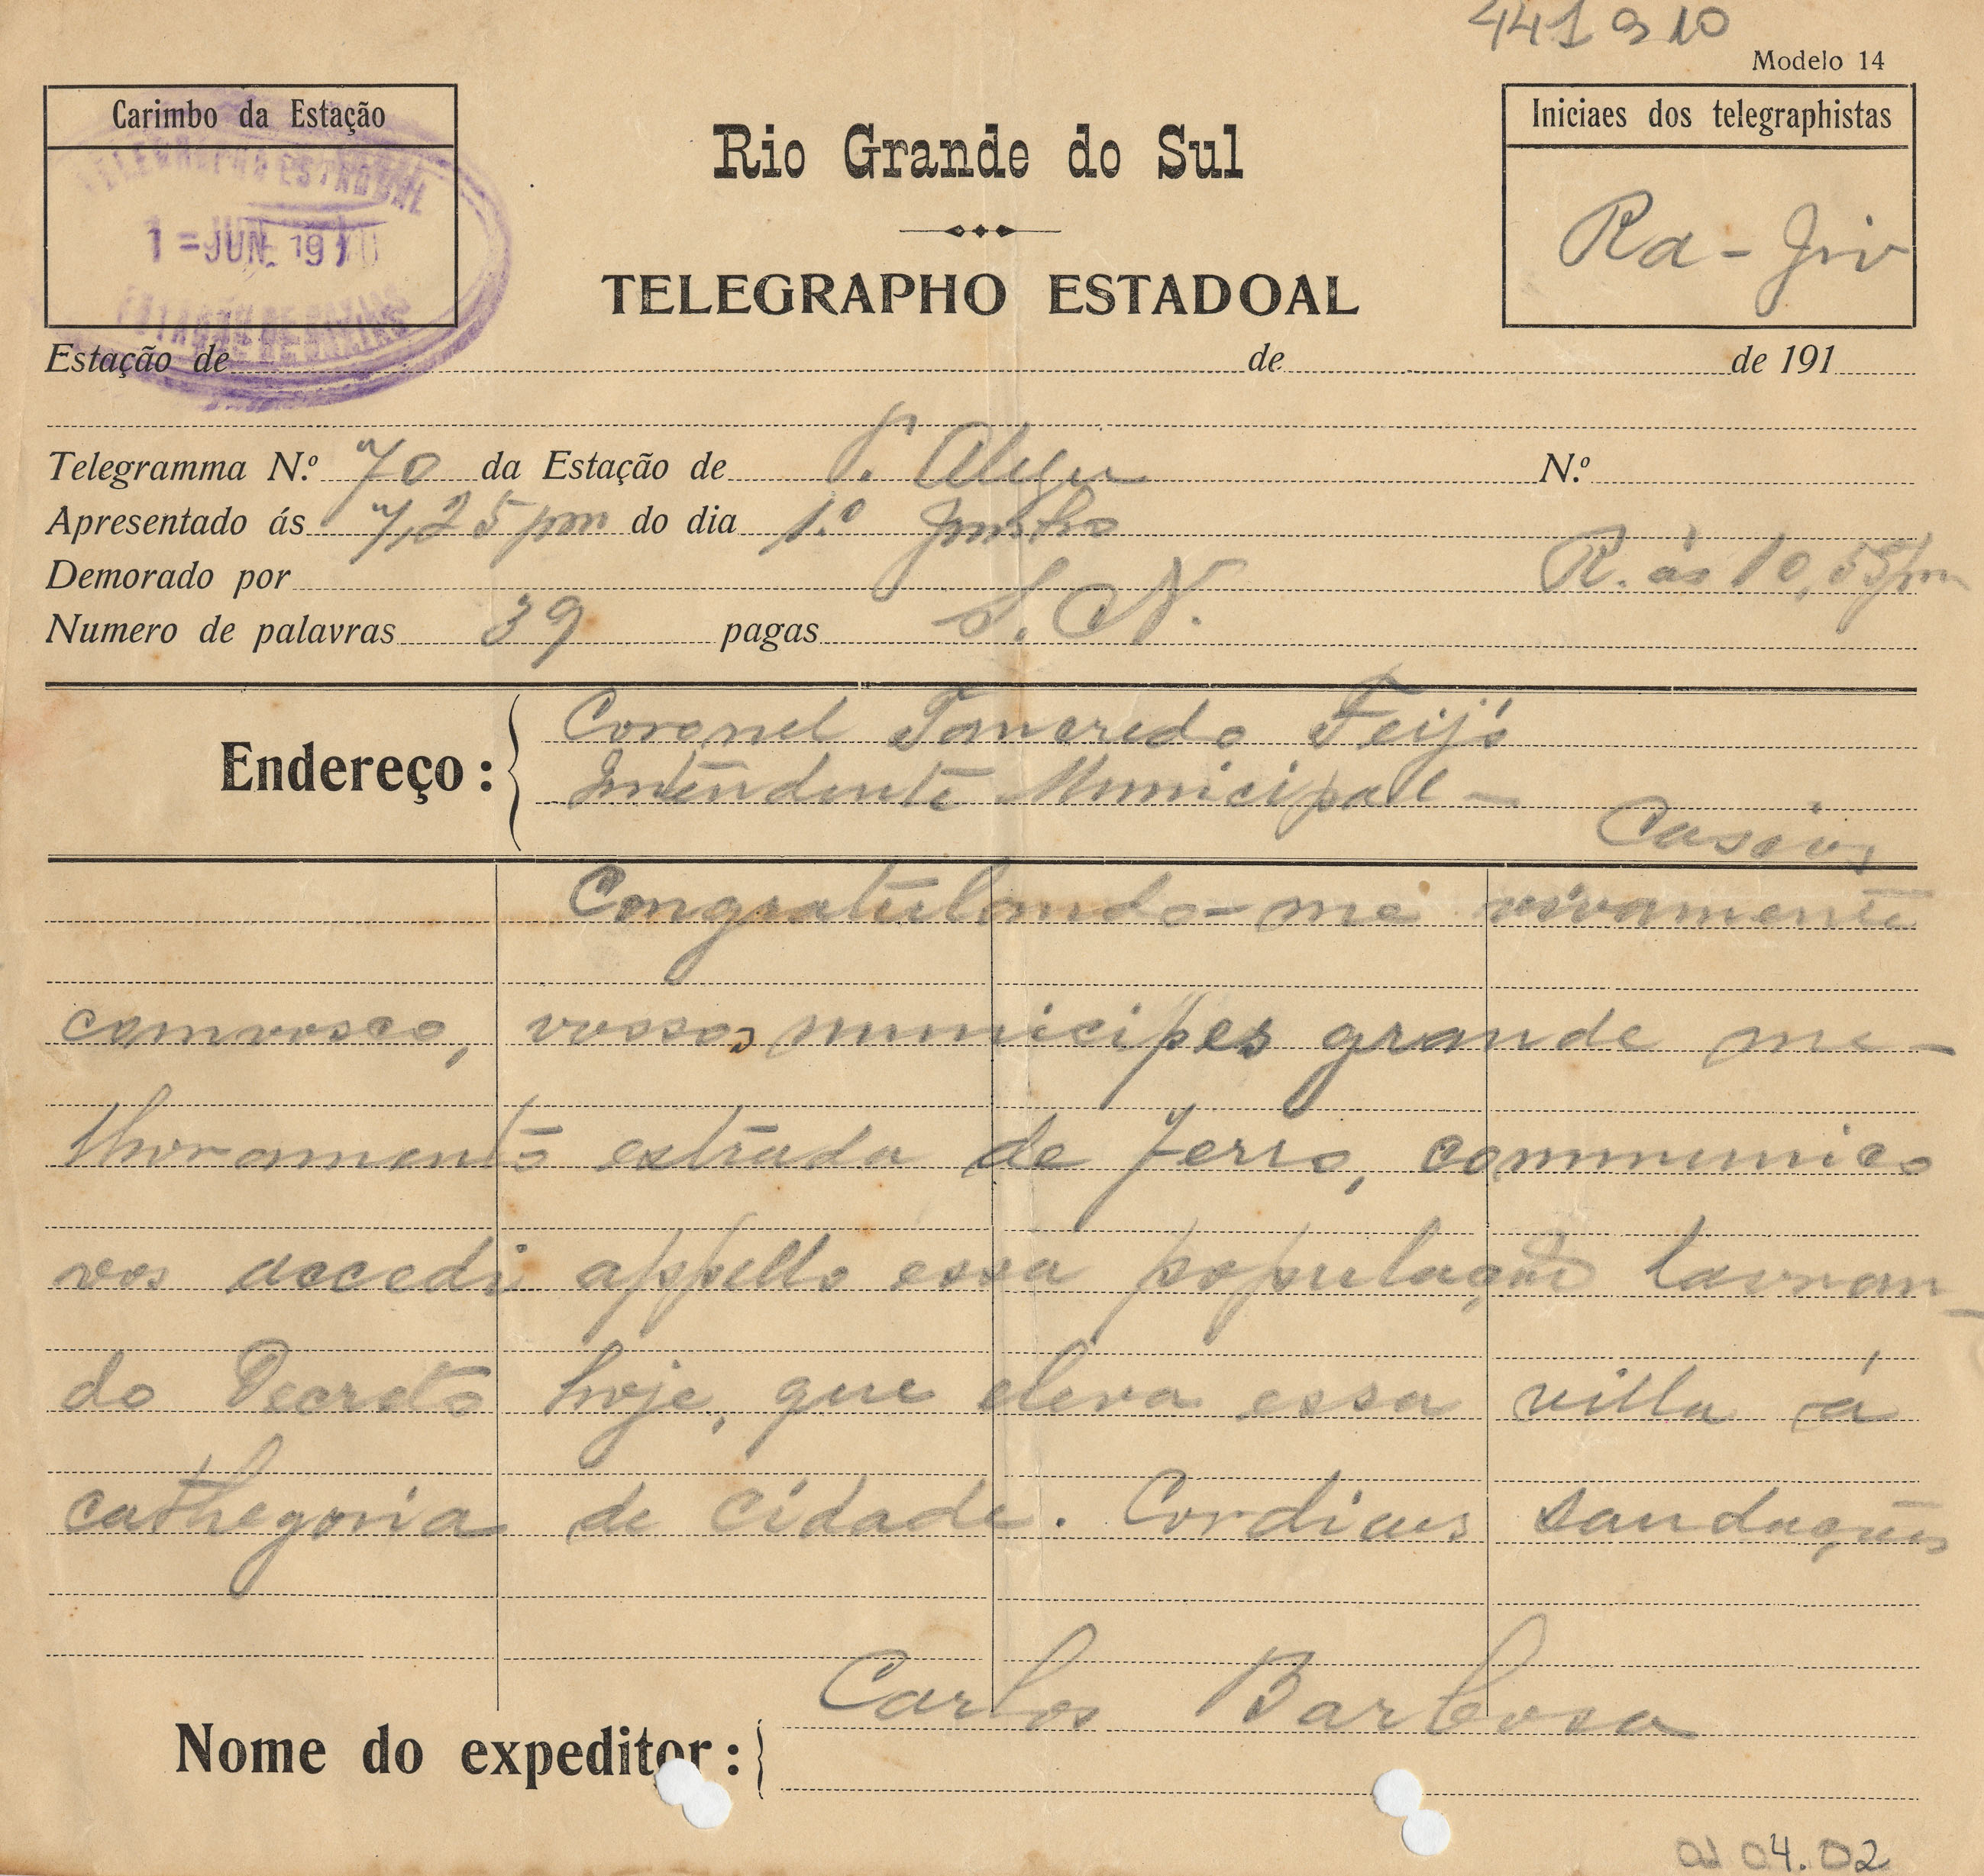 441 9 10
Modelo 14
Carimbo da Estação
TELEGRAPHO ESTADOAL
1 = JUN. 1910
ESTAÇÃO DE CAXIAS
Iniciaes dos telegraphistas
Ra -
Rio Grande do Sul
TELEGRAPHO ESTADOAL
Estação de de de 191
Telegramma N.º 70 da Estação de P. Alegre N.º
Apresentado ás 7,25 pm do dia 1.º Junho
R. às 10,55 pm
Demorado por
Numero de palavras 39 pagas S. N.
Endereço:
Coronel Tancredo Feijó
Intendente Municipal —
Caxias
Congratulando-me vivamente
comvosco, vossos municipes grande me-
lhoramento estrada de ferro, communico
vos accedi appello essa população lavran-
do Decreto hoje, que eleva essa villa á
cathegoria de cidade. Cordiaes saudações
Carlos Barbosa
Nome do expeditor:
04.02